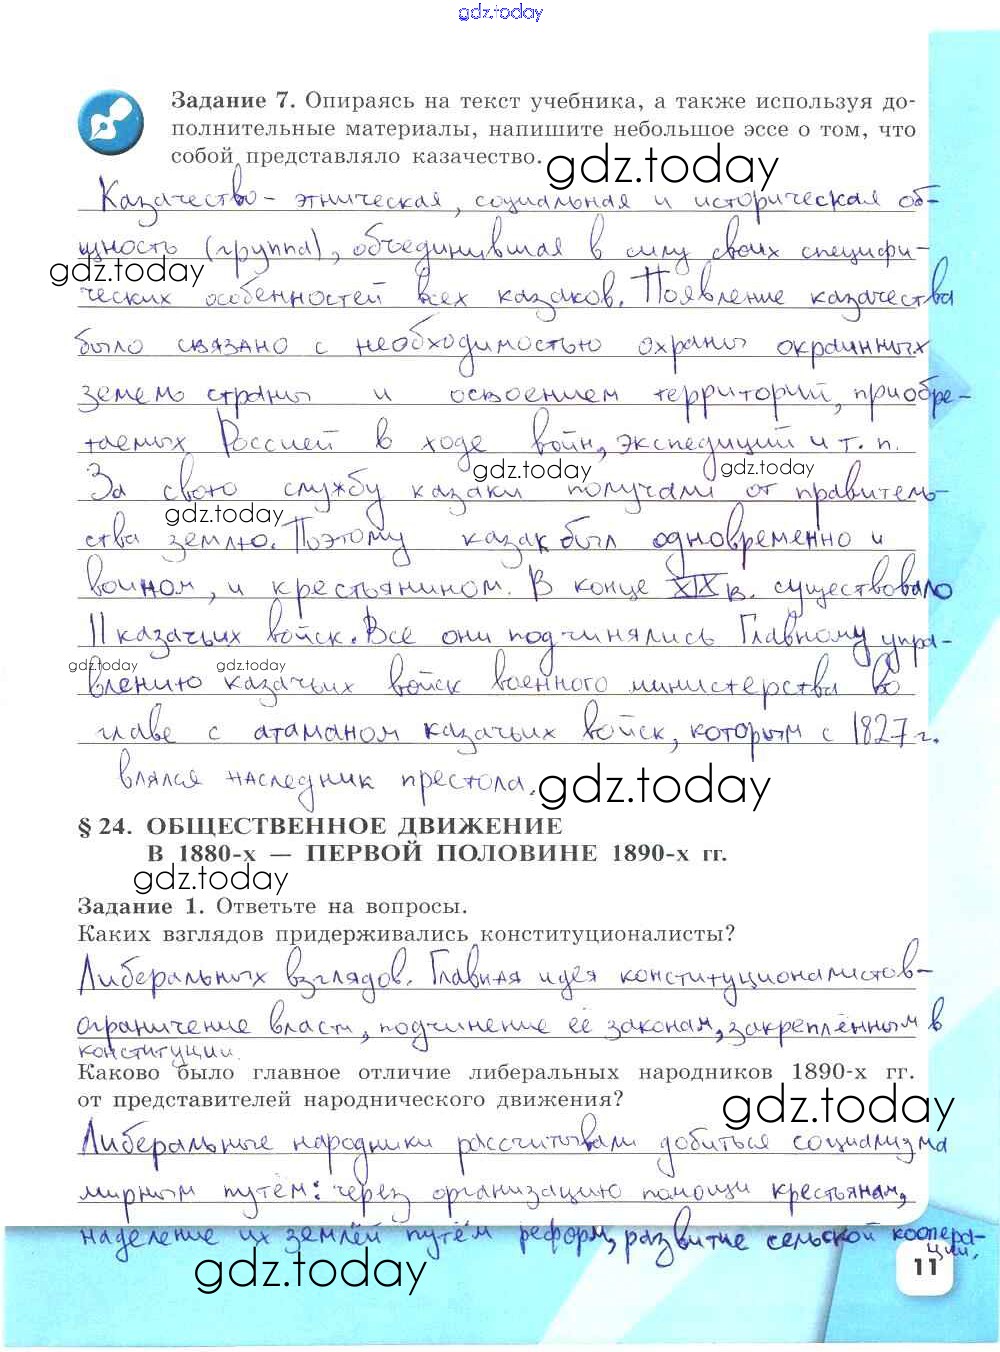 gdz.today
Задание 7. Опираясь на текст учебника, а также используя до-
полнительные материалы, напишите небольшое эссе о том, что
собой представляло казачество.
gdz.today
Казачество - этническая, социальная и историческая об-
щность (группа), объединившая в силу своих специфи-
gdz.today
ческих особенностей всех казаков. Появление казачества
было связано с необходимостью охраны окраинных
земель страны и освоением территорий, приобре-
таемых Россией в ходе войн, экспедиций и т. п.
gdz.today gdz.today
За свою службу казаки получали от правитель-
gdz.today
ства землю. Поэтому казак был одновременно и
воином, и крестьянином. В конце XIX в. существовало
11 казачьих войск. Все они подчинялись Главному упра-
gdz.today gdz.today
влению казачьих войск военного министерства во
главе с атаманом казачьих войск, которым с 1827 г.
влялся наследник престола.
gdz.today
§ 24. ОБЩЕСТВЕННОЕ ДВИЖЕНИЕ
В 1880-х — ПЕРВОЙ ПОЛОВИНЕ 1890-х гг.
gdz.today
Задание 1. Ответьте на вопросы.
Каких взглядов придерживались конституционалисты?
Либеральных взглядов. Главная идея конституционалистов-
ограничение власти, подчинение её законам, закреплённым в
конституции.
Каково было главное отличие либеральных народников 1890-х гг.
от представителей народнического движения?
gdz.today
Либеральные народники рассчитывали добиться социализма
мирным путём: через организацию помощи крестьянам,
наделение их землёй путём реформ, развитие сельской коопера-
ции.
gdz.today
11